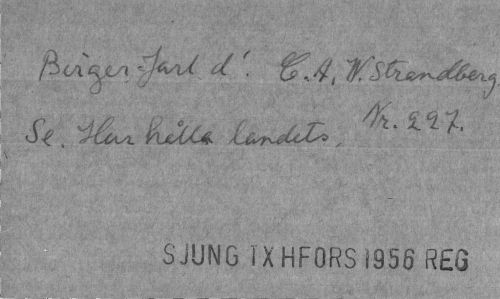 Birger-Jarl d'. C.A.W. Strandberg
Se. Hur hälla landets. Nr. 227.
SJUNG TX HFORS 1956 REG